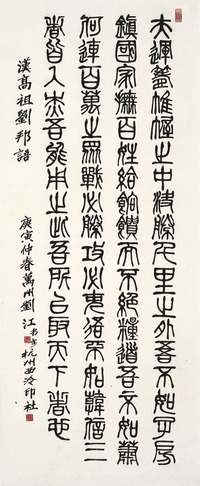 夫運籌帷幄之中決勝千里之外吾不如子房
鎮國家撫百姓給餉饋而不絕糧道吾不如蕭
何連百萬之眾戰必勝攻必取吾不如韓信三
者皆人杰吾能用之此吾所以取天下者也
漢高祖劉邦語
庚寅仲春萬州劉江书於杭州西泠印社